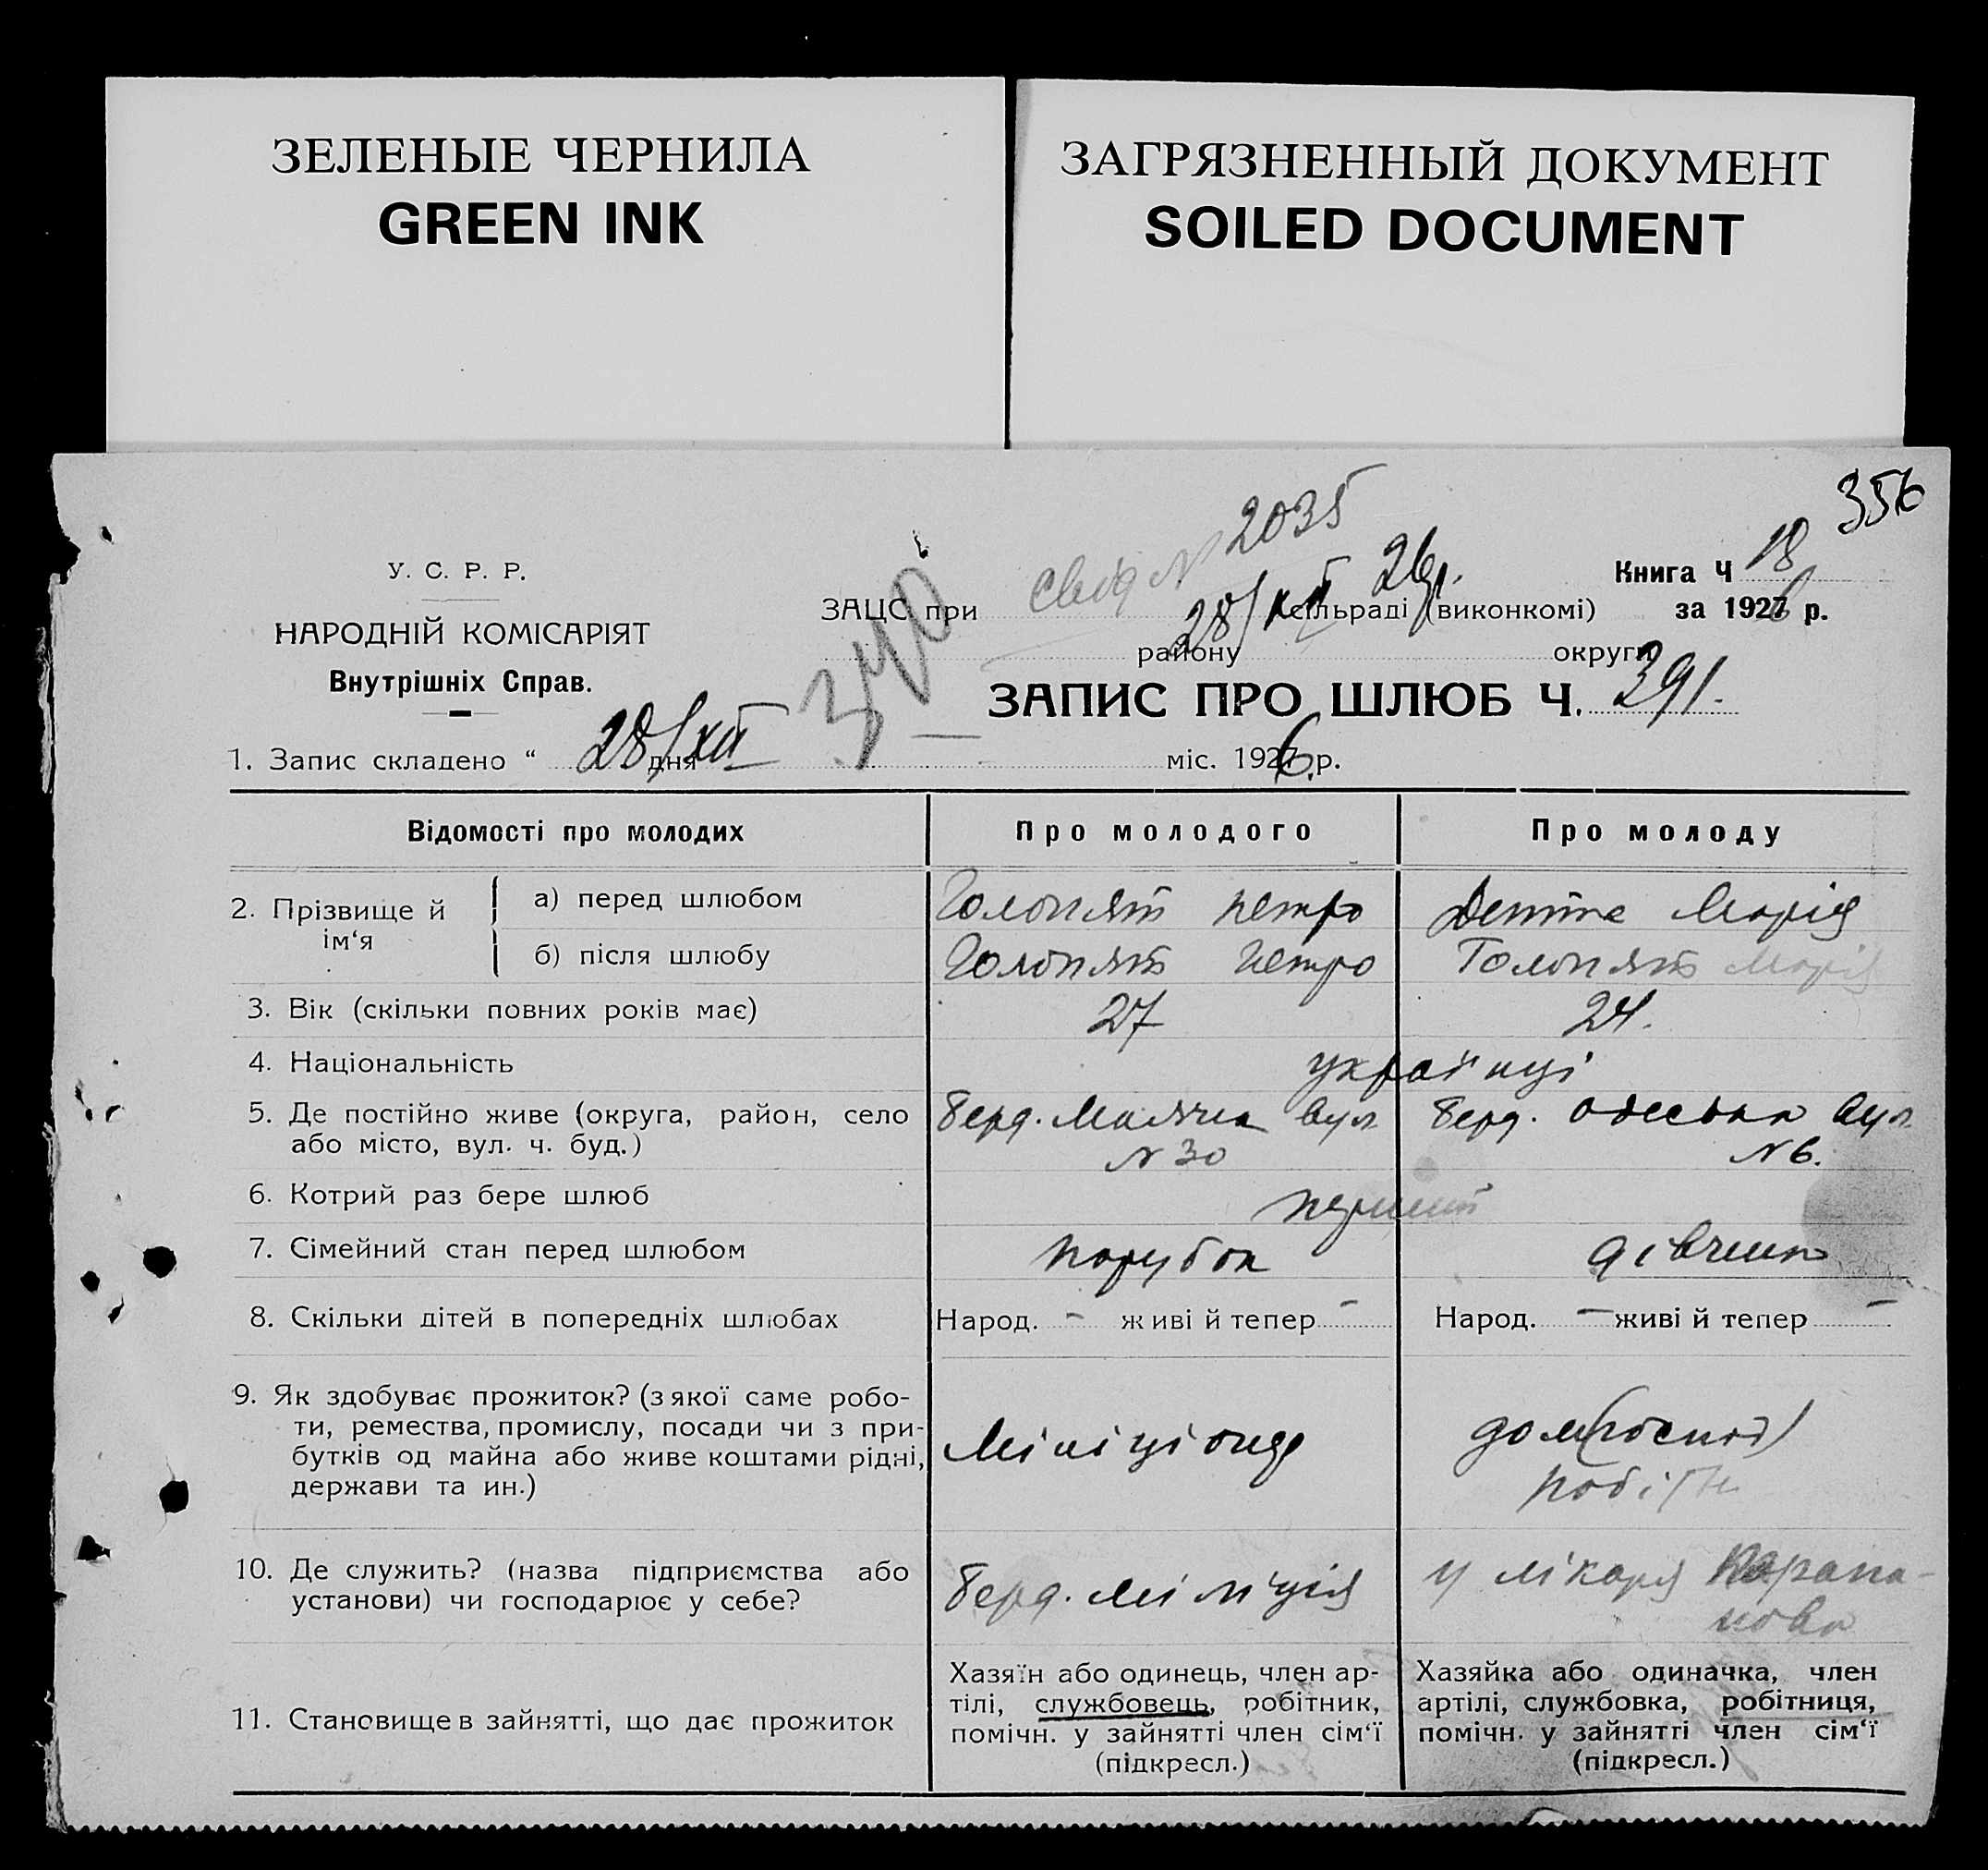 ЗЕЛЕНЫЕ ЧЕРНИЛА
GREEN INK
ЗАГРЯЗНЕННЫЙ ДОКУМЕНТ
SOILED DOCUMENT
356
У. С. Р. Р.
НАРОДНІЙ КОМІСАРІЯТ
Внутрішніх Справ.
340
свід N 2035
28/XII 26р.
ЗАЦС при сільраді (виконкомі)
району округи
Книга Ч 18
за 1926 р.
ЗАПИС ПРО ШЛЮБ Ч. 391.
1. Запис складено “ 28/XII дня міс. 1926 р.
Відомості про молодих Про молодого Про молоду
2. Прізвище й ім‘я
а) перед шлюбом Голопят Петро Марія
б) після шлюбу Голопят Петро Голопят Марія
3. Вік (скільки повних років має) 27 24.
4. Національність українці
5. Де постійно живе (округа, район, село Берд. вул Берд. Одеська вул
або місто, вул. ч. буд.) N 30 N 6.
6. Котрий раз бере шлюб перший
7. Сімейний стан перед шлюбом парубок дівчина
8. Скільки дітей в попередніх шлюбах Народ. – живі й тепер – Народ. – живі й тепер –
9. Як здобуває прожиток? (з якої саме робо-
ти, ремества, промислу, посади чи з при-
бутків од майна або живе коштами рідні,
держави та ин.)
Міліціонер
дом(господ)
робітн
10. Де служить? (назва підприємства або
установи) чи господарює у себе?
Берд. міліція
у лікаря
11. Становище в зайнятті, що дає прожиток
Хазяїн або одинець, член ар-
тілі, службовець, робітник,
помічн. у зайнятті член сім‘ї
(підкресл.)
Хазяйка або одиначка, член
артілі, службовка, робітниця,
помічн. у зайнятті член сім‘ї
(підкресл.)